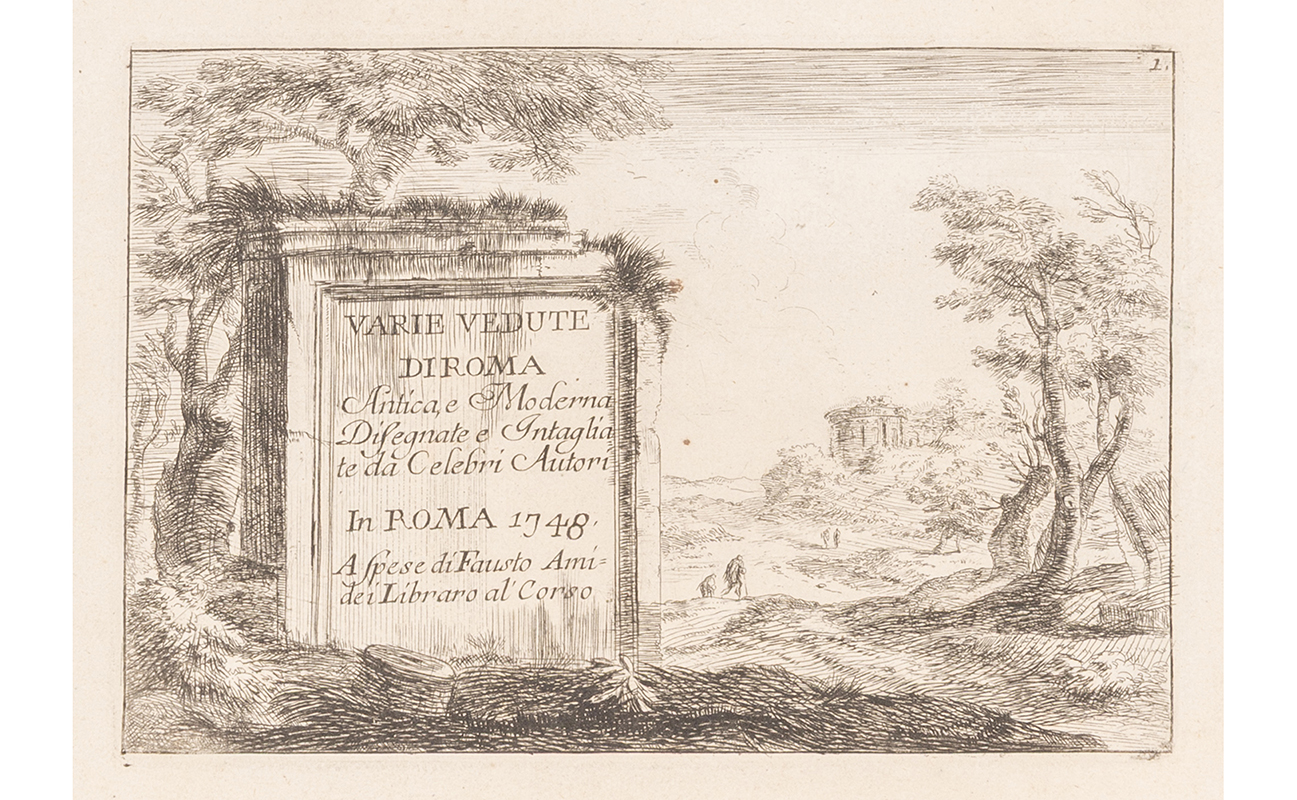 1.
VARIE VEDUTE
DI ROMA
Antica, e Moderna
Diſegnate e Intaglia
te da Celebri Autori
In ROMA 1748.
A ſpese di Fausto Ami=
dei Libraro al Corso